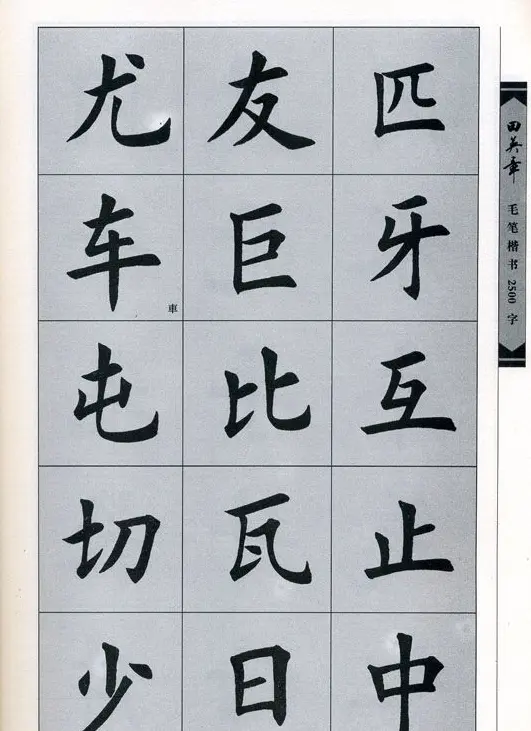 尤友匹
车巨牙
車
屯比互
切瓦止
少日中
田英章 毛笔楷书 2500 字